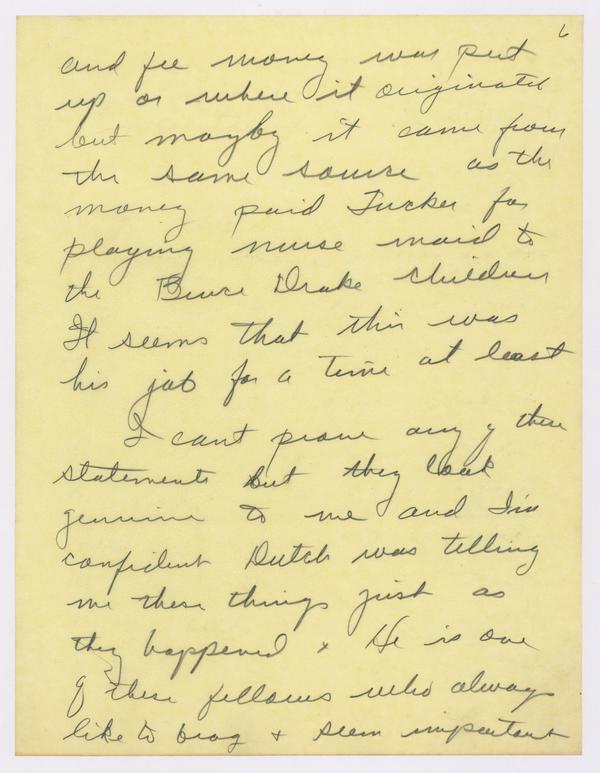 6
and fee money was put
up or where it originated
but mayby it came from
the same source as the
money paid Tucker for
playing nurse maid to
the Bruce Drake children
It seems that this was
his job for a time at least
I cant prove any of these
statements but they look
genuine to me and I'm
confident Dutch was telling
me these things just as
they happened + He is one
of these fellows who always
like to brag + seem important